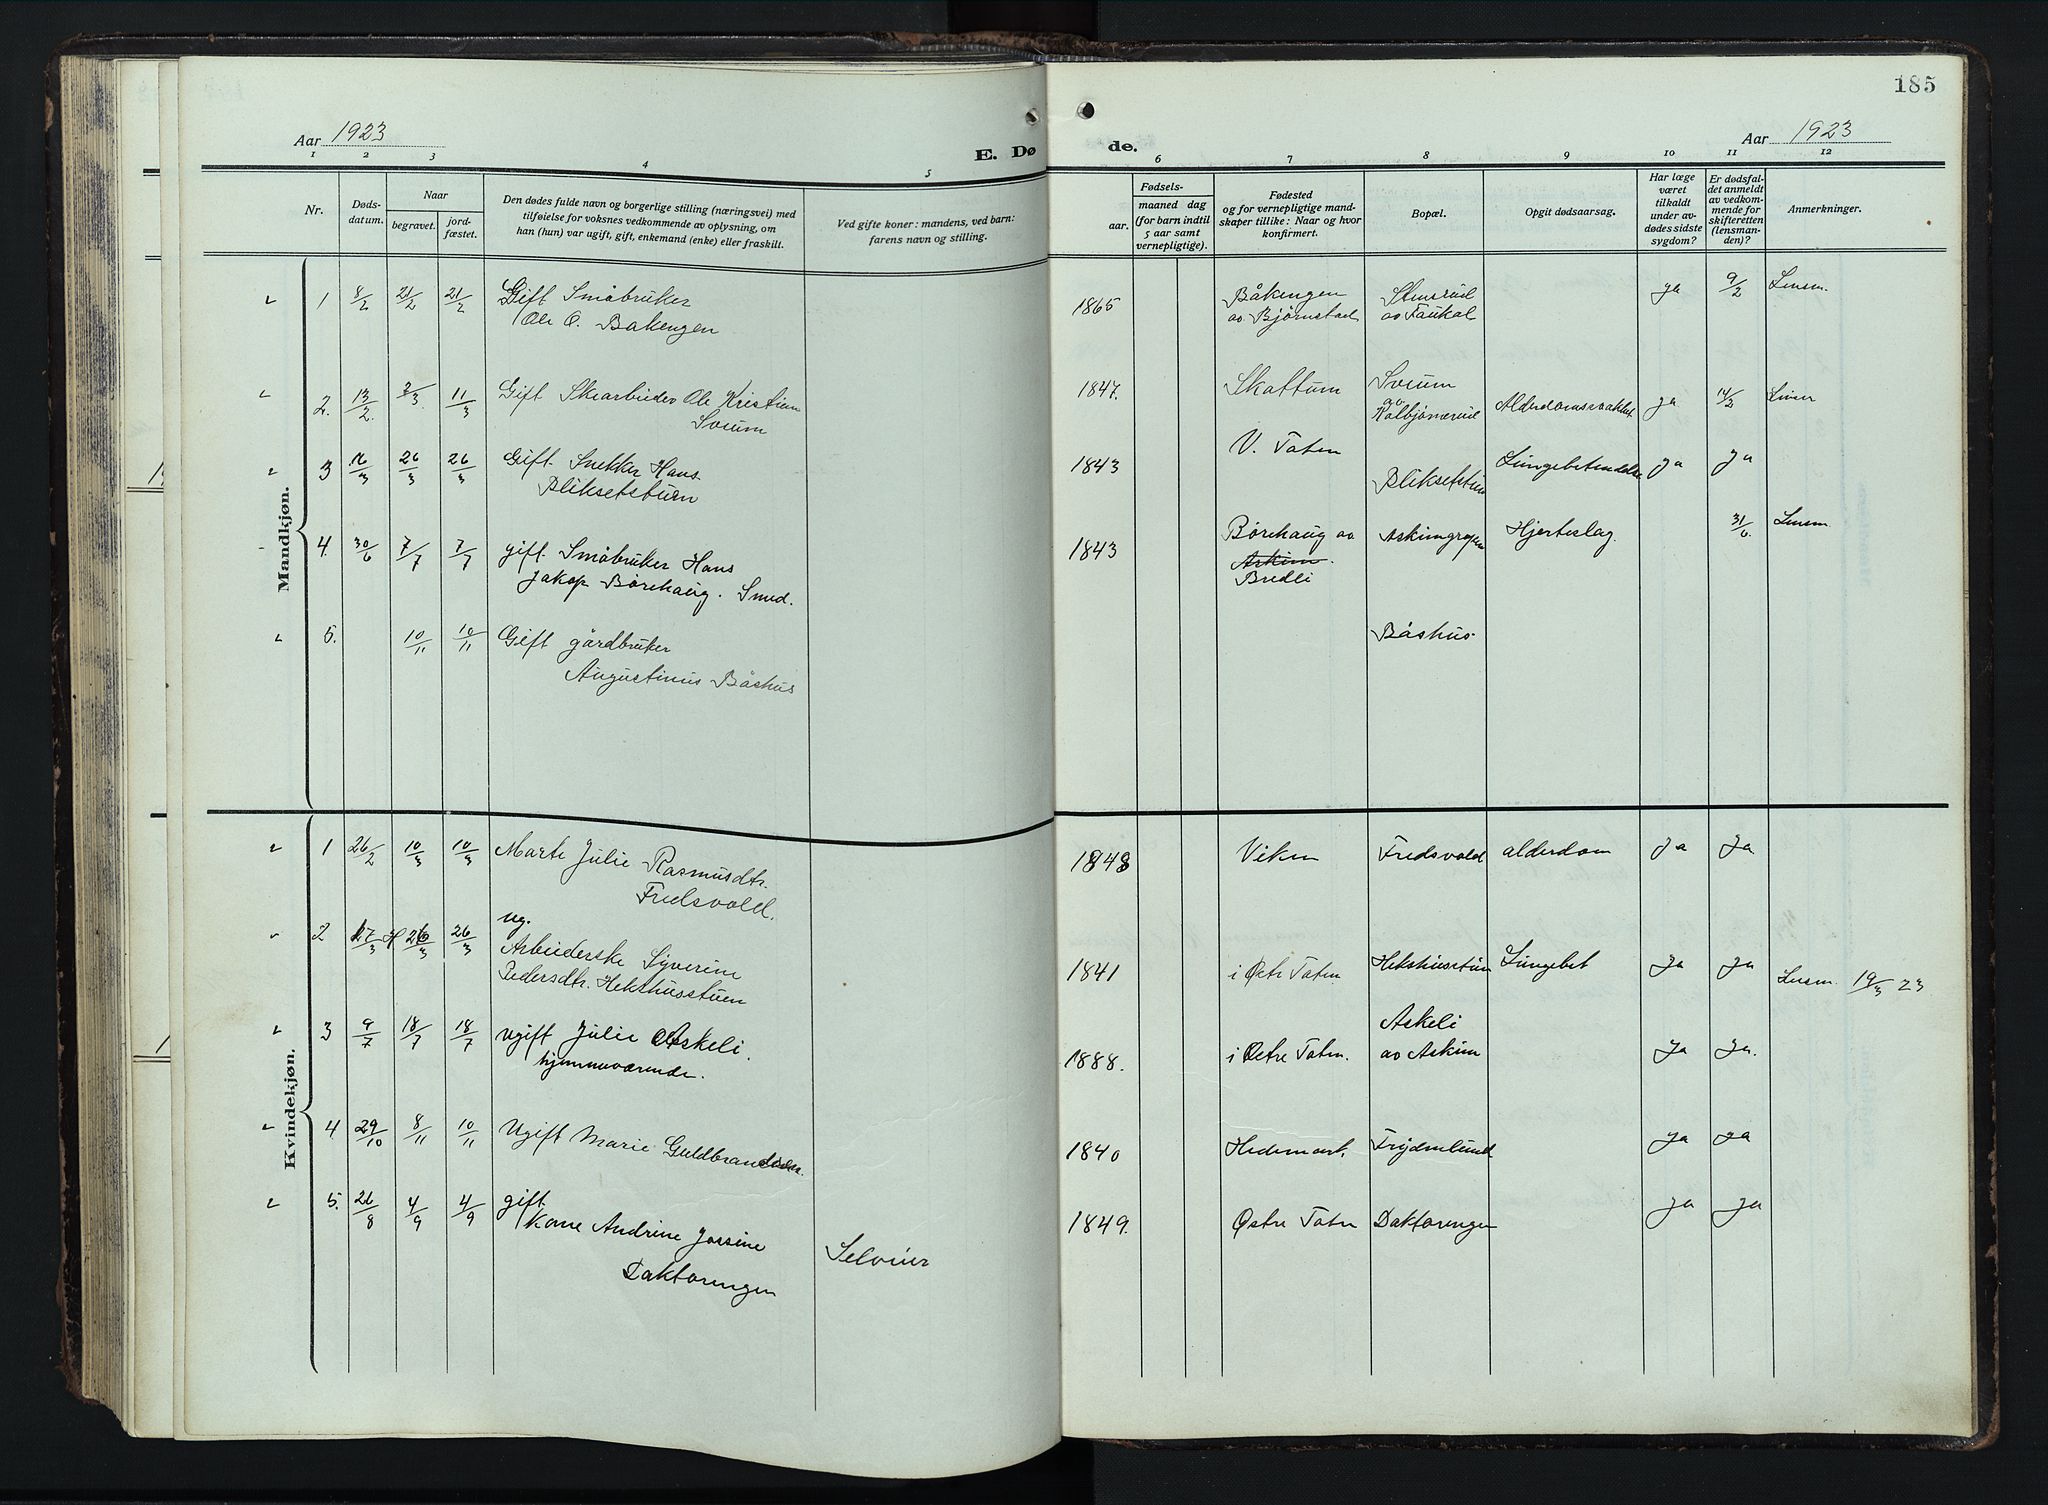 185
Aar 1923
E. Dø
de.
Aar 1923
1 2 3 4 5 6 7 8 9 10 11 12
Nr.
Døds-
datum.
Naar
begravet.
jord-
fæstet.
Den dødes fulde navn og borgerlige stilling (næringsvei) med
tilføielse for voksnes vedkommende av oplysning, om
han (hun) var ugift, gift, enkemand (enke) eller fraskilt.
Ved gifte koner: mandens, ved barn:
farens navn og stilling.
Fødsels-
aar.
maaned dag
(for barn indtil
5 aar samt
vernepligtige).
Fødested
og for vernepligtige mand-
skaper tillike: Naar og hvor
konfirmert.
Bopæl.
Opgit dødsaarsag.
Har læge
været
tilkaldt
under av-
dødes sidste
sygdom?
Er dødsfal-
det anmeldt
av vedkom-
mende for
skifteretten
(lensman-
den)?
Anmerkninger.
Mandkjøn.
1 8/2 21/2 21/2 Gift Småbruker
Ole O. Bakengen
1865 Båkengen
av Bjørnstad
Stensrud
av Faukal
ja 9/2 Lensm.
2. 13/2 3/3 11/3 Gift Skoarbeider Ole Kristian
Sveum
1847. Skattum Sveum
av
Kolbjørnsrud
Alderdomssvakhet ja 14/2
3 16/3 26/3 26/3 Gift Snekker Hans
Bliksetstuen
1843 V. Toten Bliksetstuen Lungebetendelse ja ja
4. 30/6 7/7 7/7 gift Småbruker Hans
Jakop Børehaug. Smed.
1843 Børehaug av
Askim.
Bredli
Askimgropen Hjerteslag. 31/6 Lensm.
5. 10/11 10/11 Gift gårdbruker
Augustinus Båshus
Båshus
Kvindekjøn.
1 26/2 10/3 10/3 Marte Julie Rasmusdtr.
Fredsvold.
1848 Viken Fredsvold alderdom ja ja
2 17/3 26/3 26/3 ug.
Arbeiderske Syverine
Pedersdtr. Hekshusstuen
1841 i Østre Toten Hekshusstuen Lungebet ja ja Lensm. 19/3 23
3 9/7 18/7 18/7 ugift Julie Askeli.
hjemmeværende.
1888. i Østre Toten. Askeli
av Askim
ja ja.
4 29/10 8/11 10/11 Ugift Marie Guldbrandsen.
1840 Hedemark. Frydenlund ja ja
5. 26/8 4/9 4/9 gift
Kone Andrine Josine
Daktorengen
Selveier
1849. Østre Toten Daktorengen ja ja